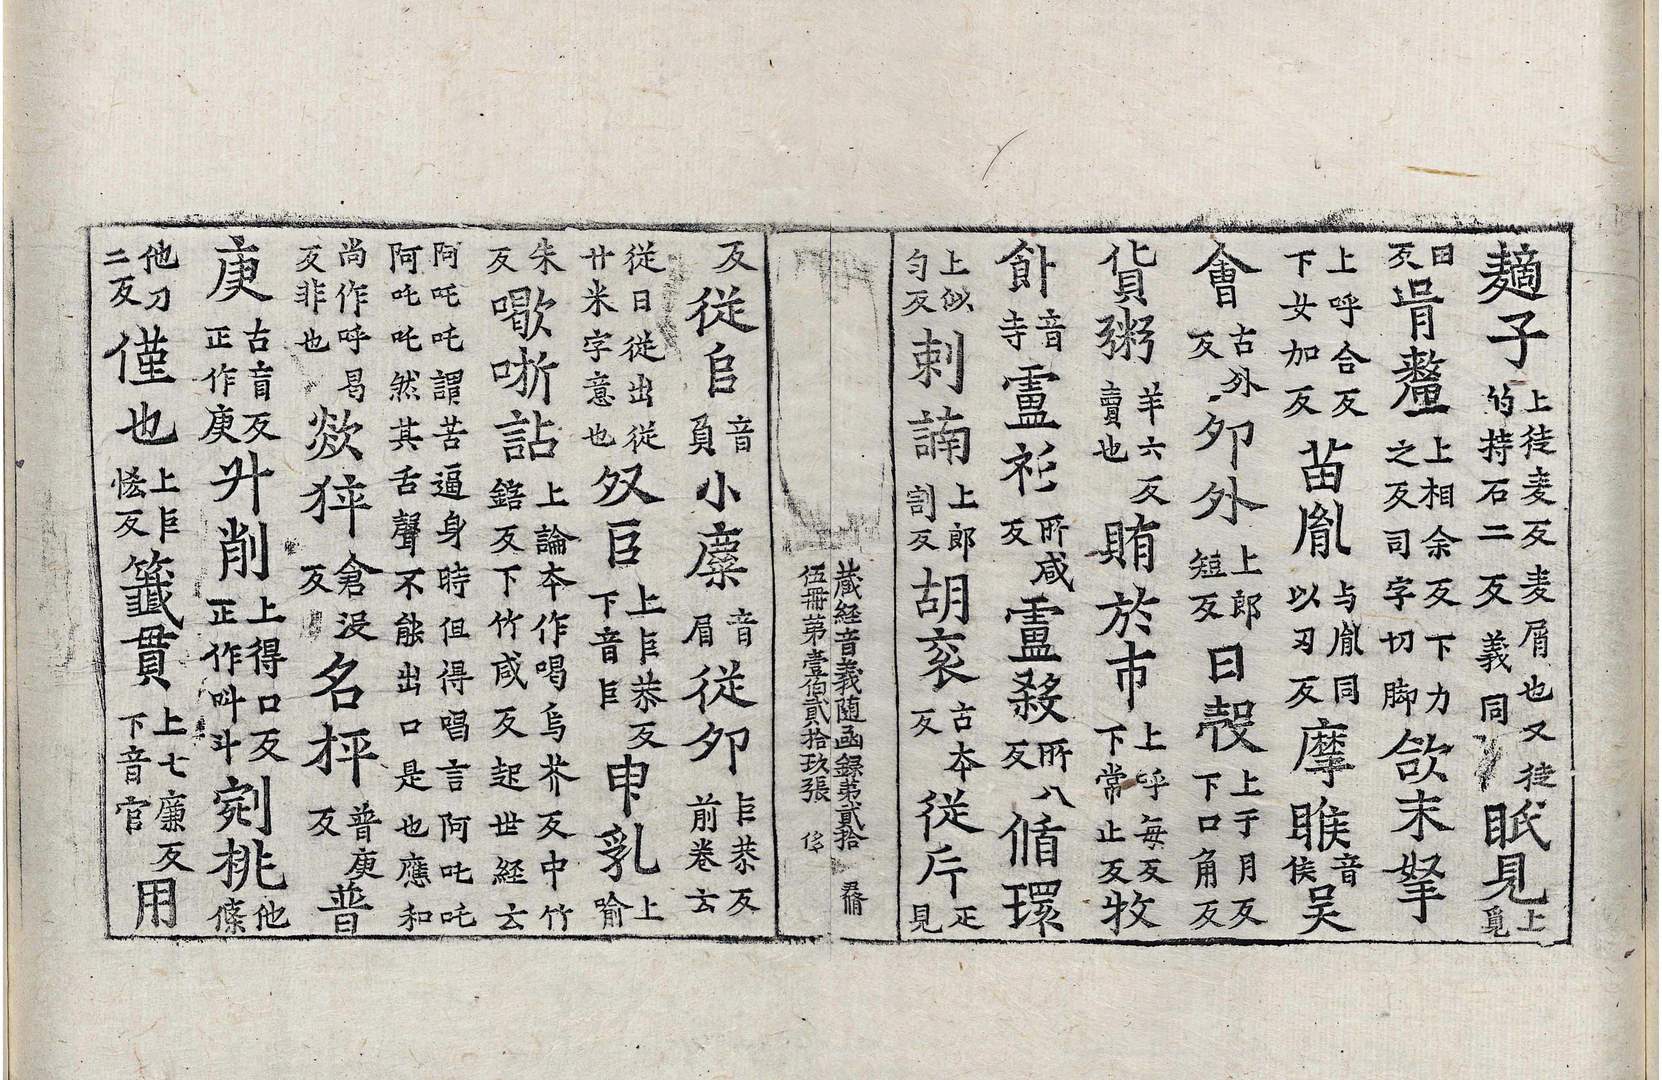 麺子上徒麦反麦屑也又徒竹持石二反義同眂見上覓
田反肯𨯳上相余反下力之反司字切脚欱末拏
上呼合反下女加反苗胤与胤同以刃反摩睺音侯吴
會古外反夘外上郎短反日㱿上于月反下口角反
貨粥羊六反賣也賄於市上呼每反下常止反牧
飤音寺䨩衫所咸反䨩殺所八反循環
上似匀反剌諵上郎割反胡衮古本反従斤疋見
蔵經音義随函録苐貳拾
伍冊苐壹伯貳拾玖張
反従𦣝音負小糜音眉従夘𦣝恭反前卷云
従日従出従廾米字意也䢋𦣝上𦣝恭反下音𦣝申乳上喻
朱反噷哳詀上論本作喝烏芥反中竹鎋反下竹咸反起世経云
阿吒吒謂苦逼身時但得唱言阿吒吒阿吒吒然其舌聲不能出口是也應和
尚作呼曷反非也欻猝倉浸反名枰普庚反普
庚古盲反正作庚升削上得口反正作呌斗剜桃他絛
他刀二反僅也上𦣝恡反籤貫上七廉反下音官用